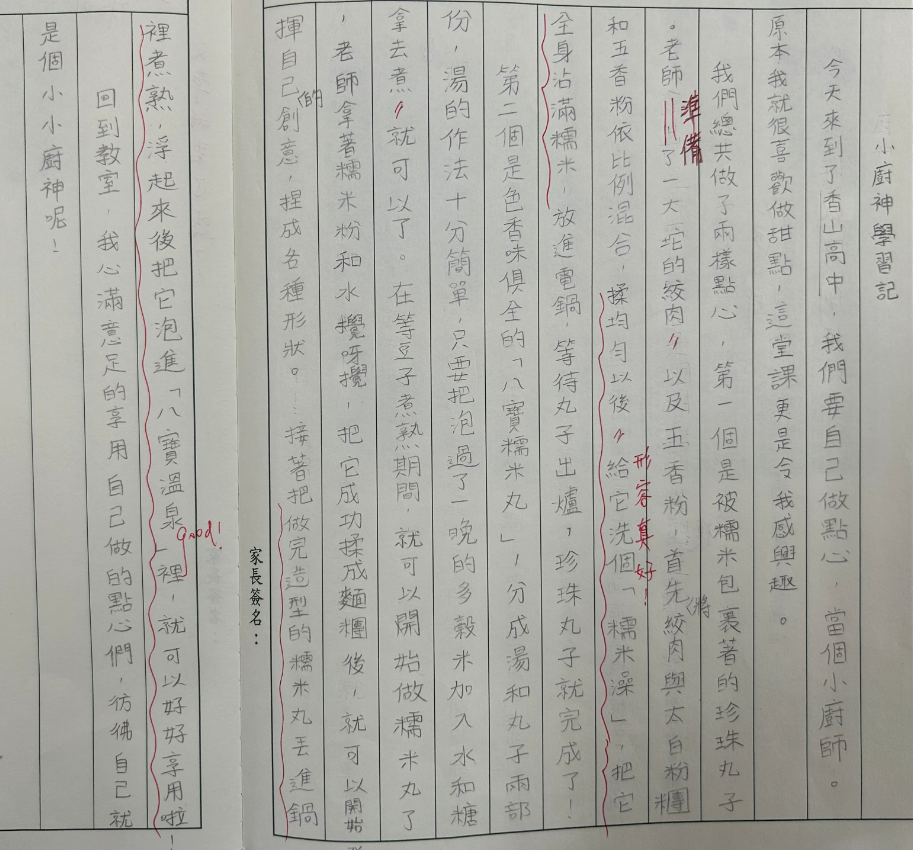 小廚神學習記
今天來到了香山高中，我們要自己做點心，當個小廚師。
原本我就很喜歡做甜點，這堂課更是令我感興趣。
我們總共做了兩樣點心，第一個是被糯米包裹著的珍珠丸子
。老師準備了一大坨的絞肉，以及五香粉，首先將絞肉與太白粉糰
和五香粉依比例混合，揉均勻以後，給它洗個「糯米澡」，把它
形容真好！
全身沾滿糯米，放進電鍋，等待丸子出爐，珍珠丸子就完成了！
第二個是色香味俱全的「八寶糯米丸」，分成湯和丸子兩部
份，湯的作法十分簡單，只要把泡過了一晚的多穀米加入水和糖
拿去煮，就可以了。在等豆子煮熟期間，就可以開始做糯米丸了
，老師拿著糯米粉和水攪呀攪，把它成功揉成麵糰後，就可以開始
揮自己的創意，捏成各種形狀。接著把做完造型的糯米丸丟進鍋
家長簽名：
裡煮熟，浮起來後把它泡進「八寶溫泉」裡，就可以好好享用啦！
good!
回到教室，我心滿意足的享用自己做的點心們，彷彿自己就
是個小小廚神呢！